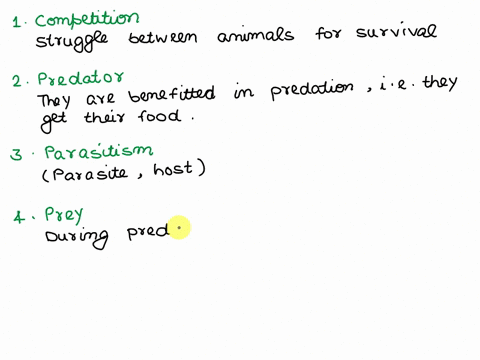 1. Competition
struggle between animals for survival
2. Predator
They are benefitted in predation, i.e. they
get their food.
3. Parasitism
(Parasite, host)
4. Prey
During pred